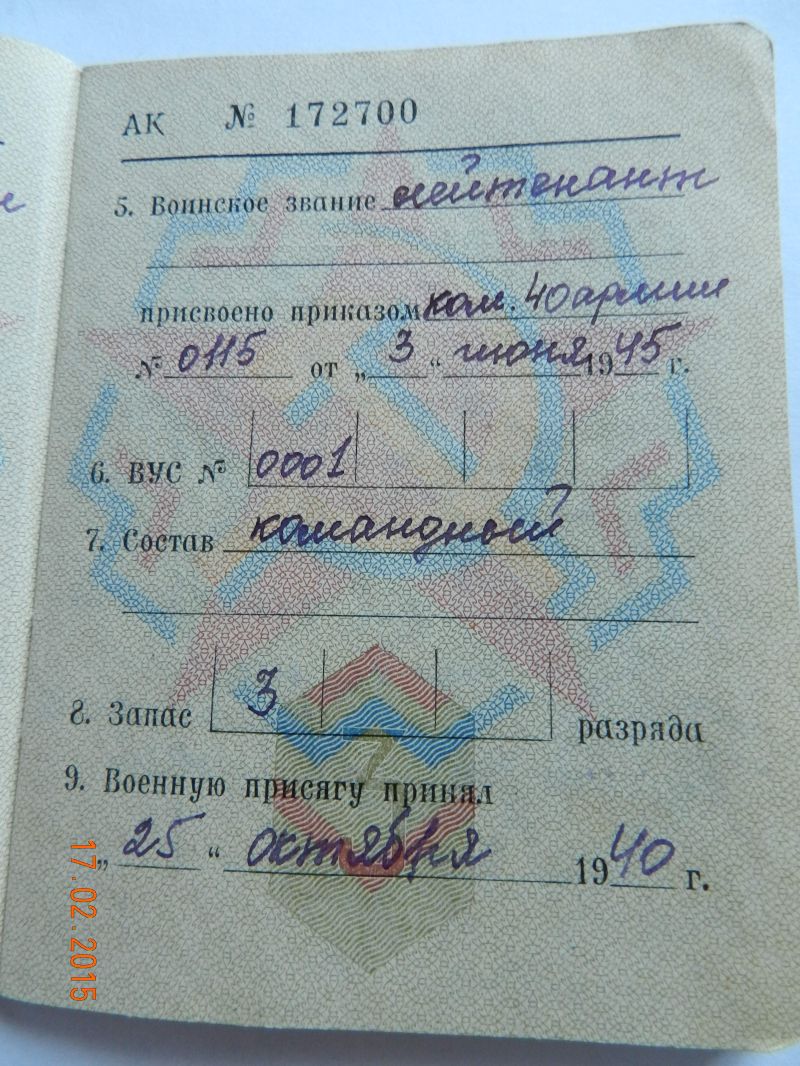 АК № 172700
5. Воинское звание лейтенант
присвоено приказом ком. 40 армии
№ 0115 от „ 3 “ июня 1945 г.
6. ВУС № 0001
7. Состав командный
8. Запас 3 разряда
9. Военную присягу принял
„ 25 “ октября 1940 г.
17.02.2015